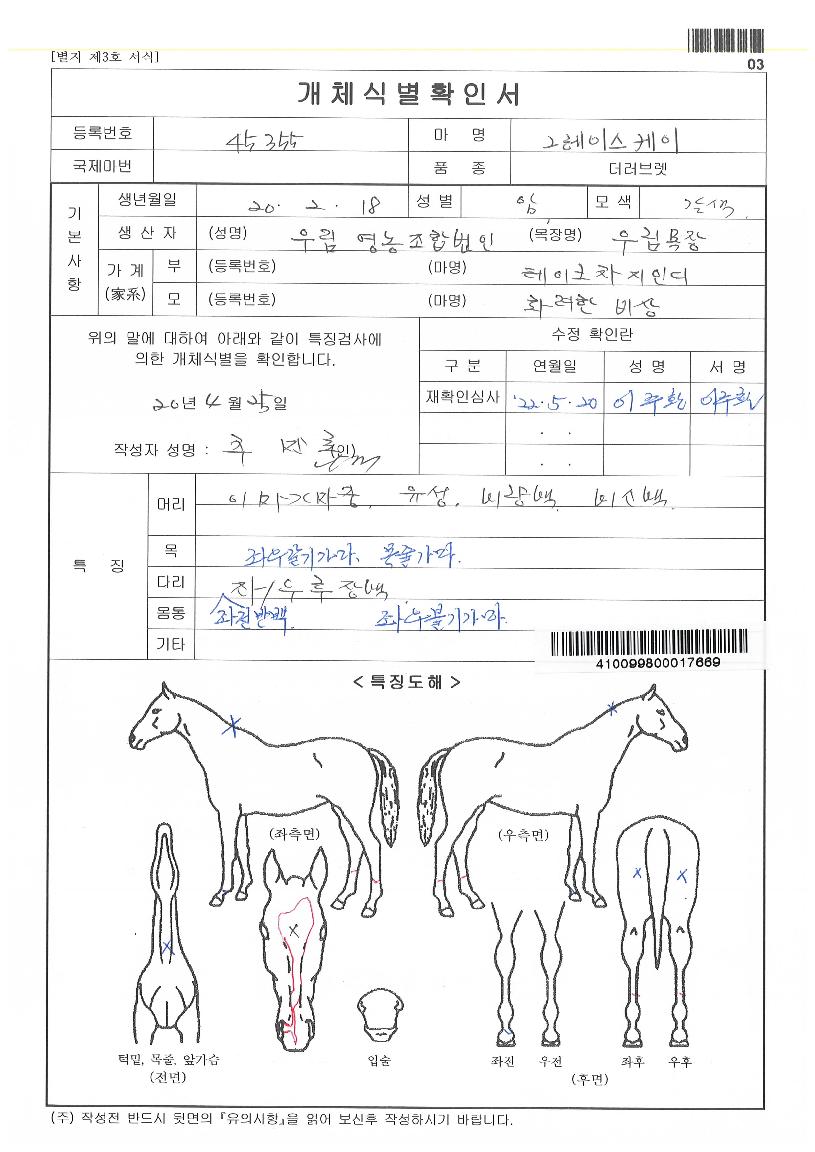 [별지 제3호 서식]
03
개체식별확인서
등록번호 45355 마 명 그레이스케이
국제마번 품 종 더러브렛
기본사항
생년월일 20. 2. 18 성 별 암 모 색 갈색
생 산 자 (성명) 우림 영농조합법인 (목장명) 우림목장
가 계 (家系) 부 (등록번호) (마명) 테이크차지인디
모 (등록번호) (마명) 화려한 비상
위의 말에 대하여 아래와 같이 특징검사에
의한 개체식별을 확인합니다.
20년 4월 25일
작성자 성명 : (인)
수정 확인란
구 분 연월일 성 명 서 명
재확인심사 '22. 5. 20 이주환 이주환
. .
. .
특 징
머리 이마가마중, 유성, 비량백, 비신백
목 좌우갈기가마, 목줄가마.
다리 좌/우후장백
몸통 좌전반백. 좌우볼기가마.
기타
410099800017669
< 특징도해 >
(좌측면) (우측면)
턱밑, 목줄, 앞가슴
(전면)
입술
좌전 우전 좌후 우후
(후면)
(주) 작성전 반드시 뒷면의 『유의시항』을 읽어 보신후 작성하시기 바랍니다.